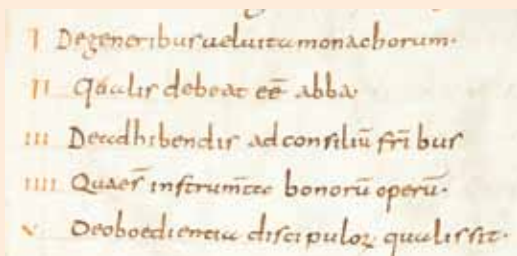 I Degeneribus uel uita monachorum·
II Qualis debeat eē abba·
III De adhibendis ad consiliū fr̄ibus
IIII Quae s̄ instrum̄ta bonorū operū·
V De oboedientia discipuloꝝ qualis sit·